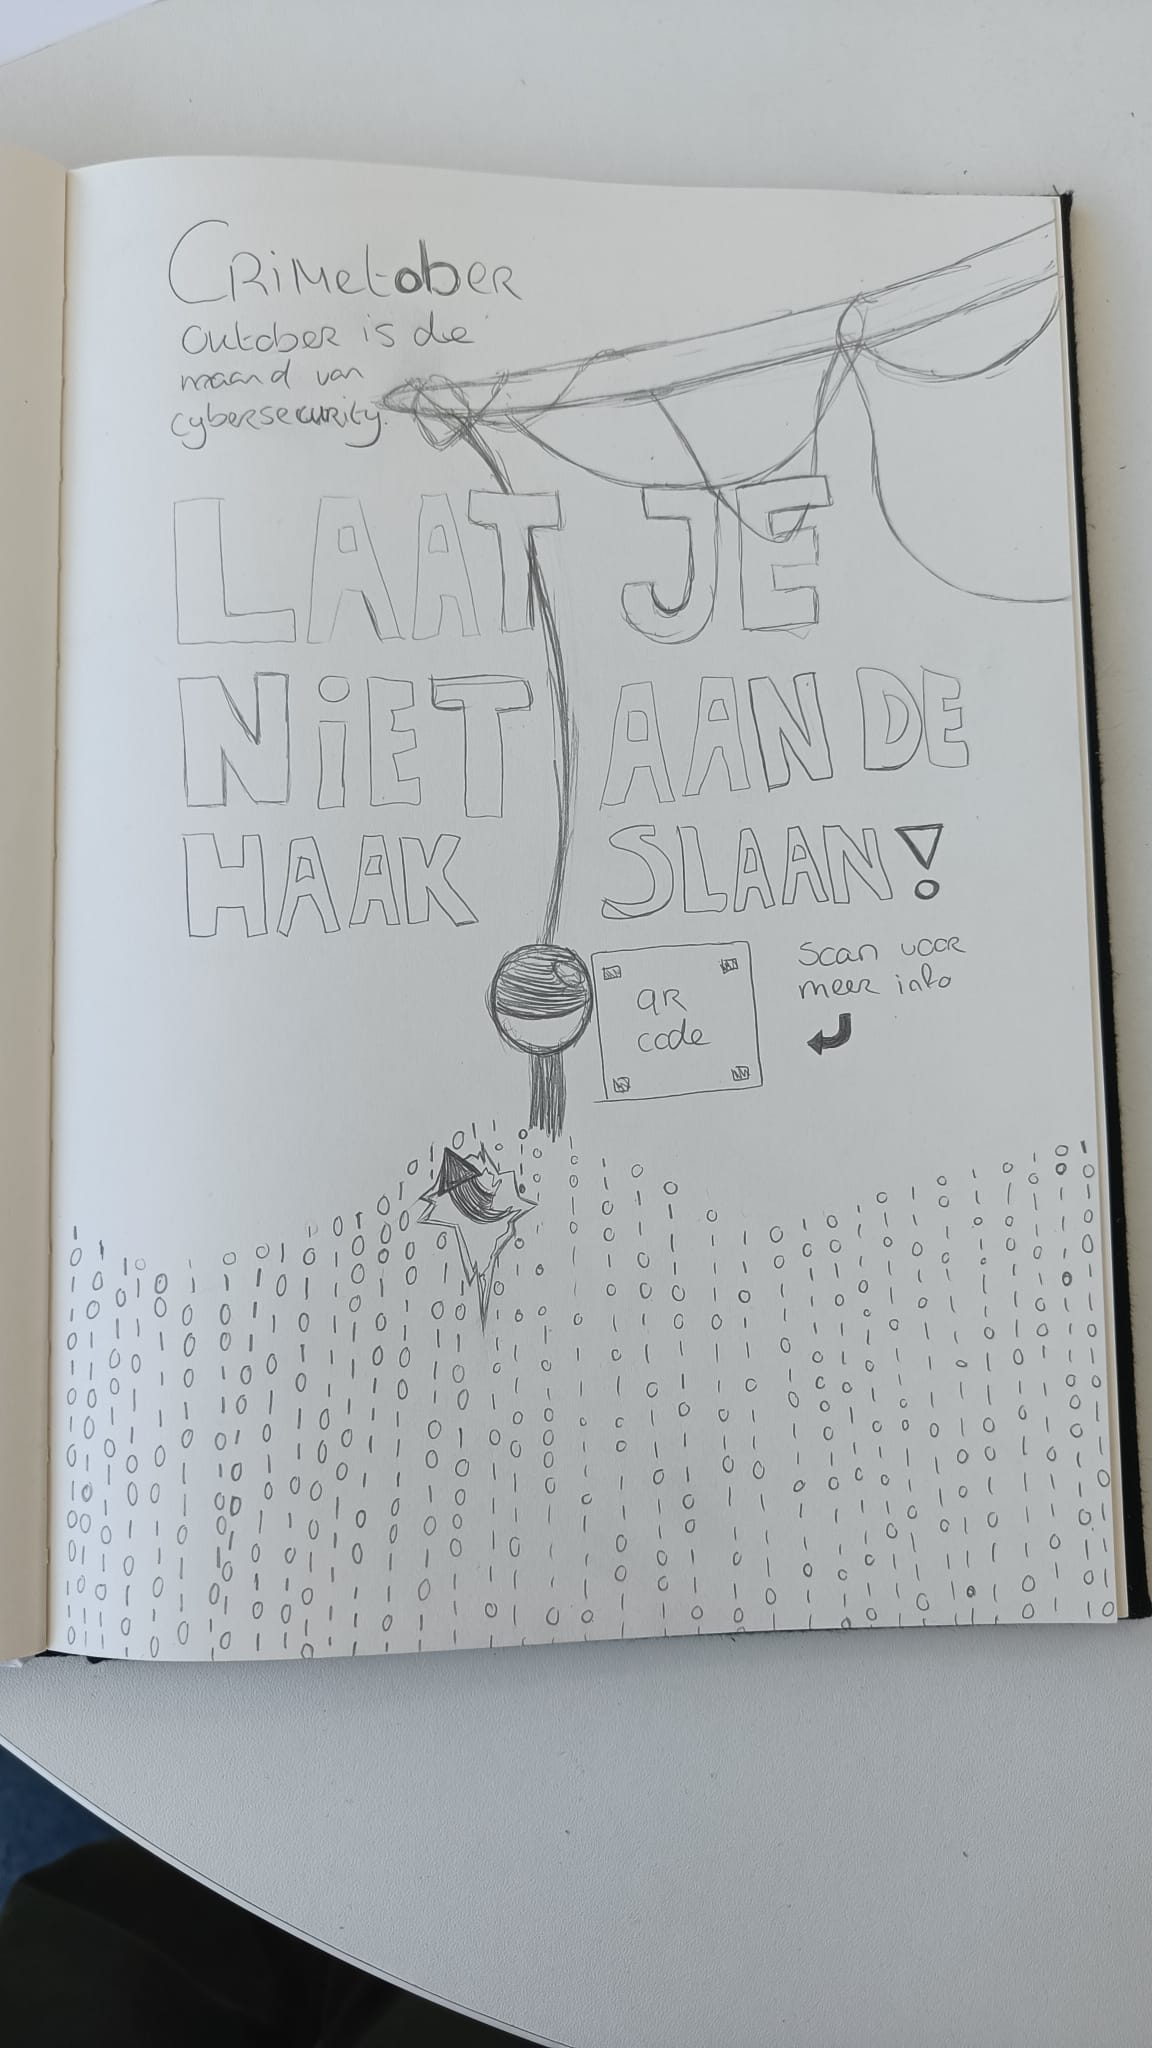 CRiMetobER
Outober is de
maand van
cybersecurity.
LAAT JE
NiET AAN DE
HAAK SLAAN!
QR
code
Scan voor
meer info